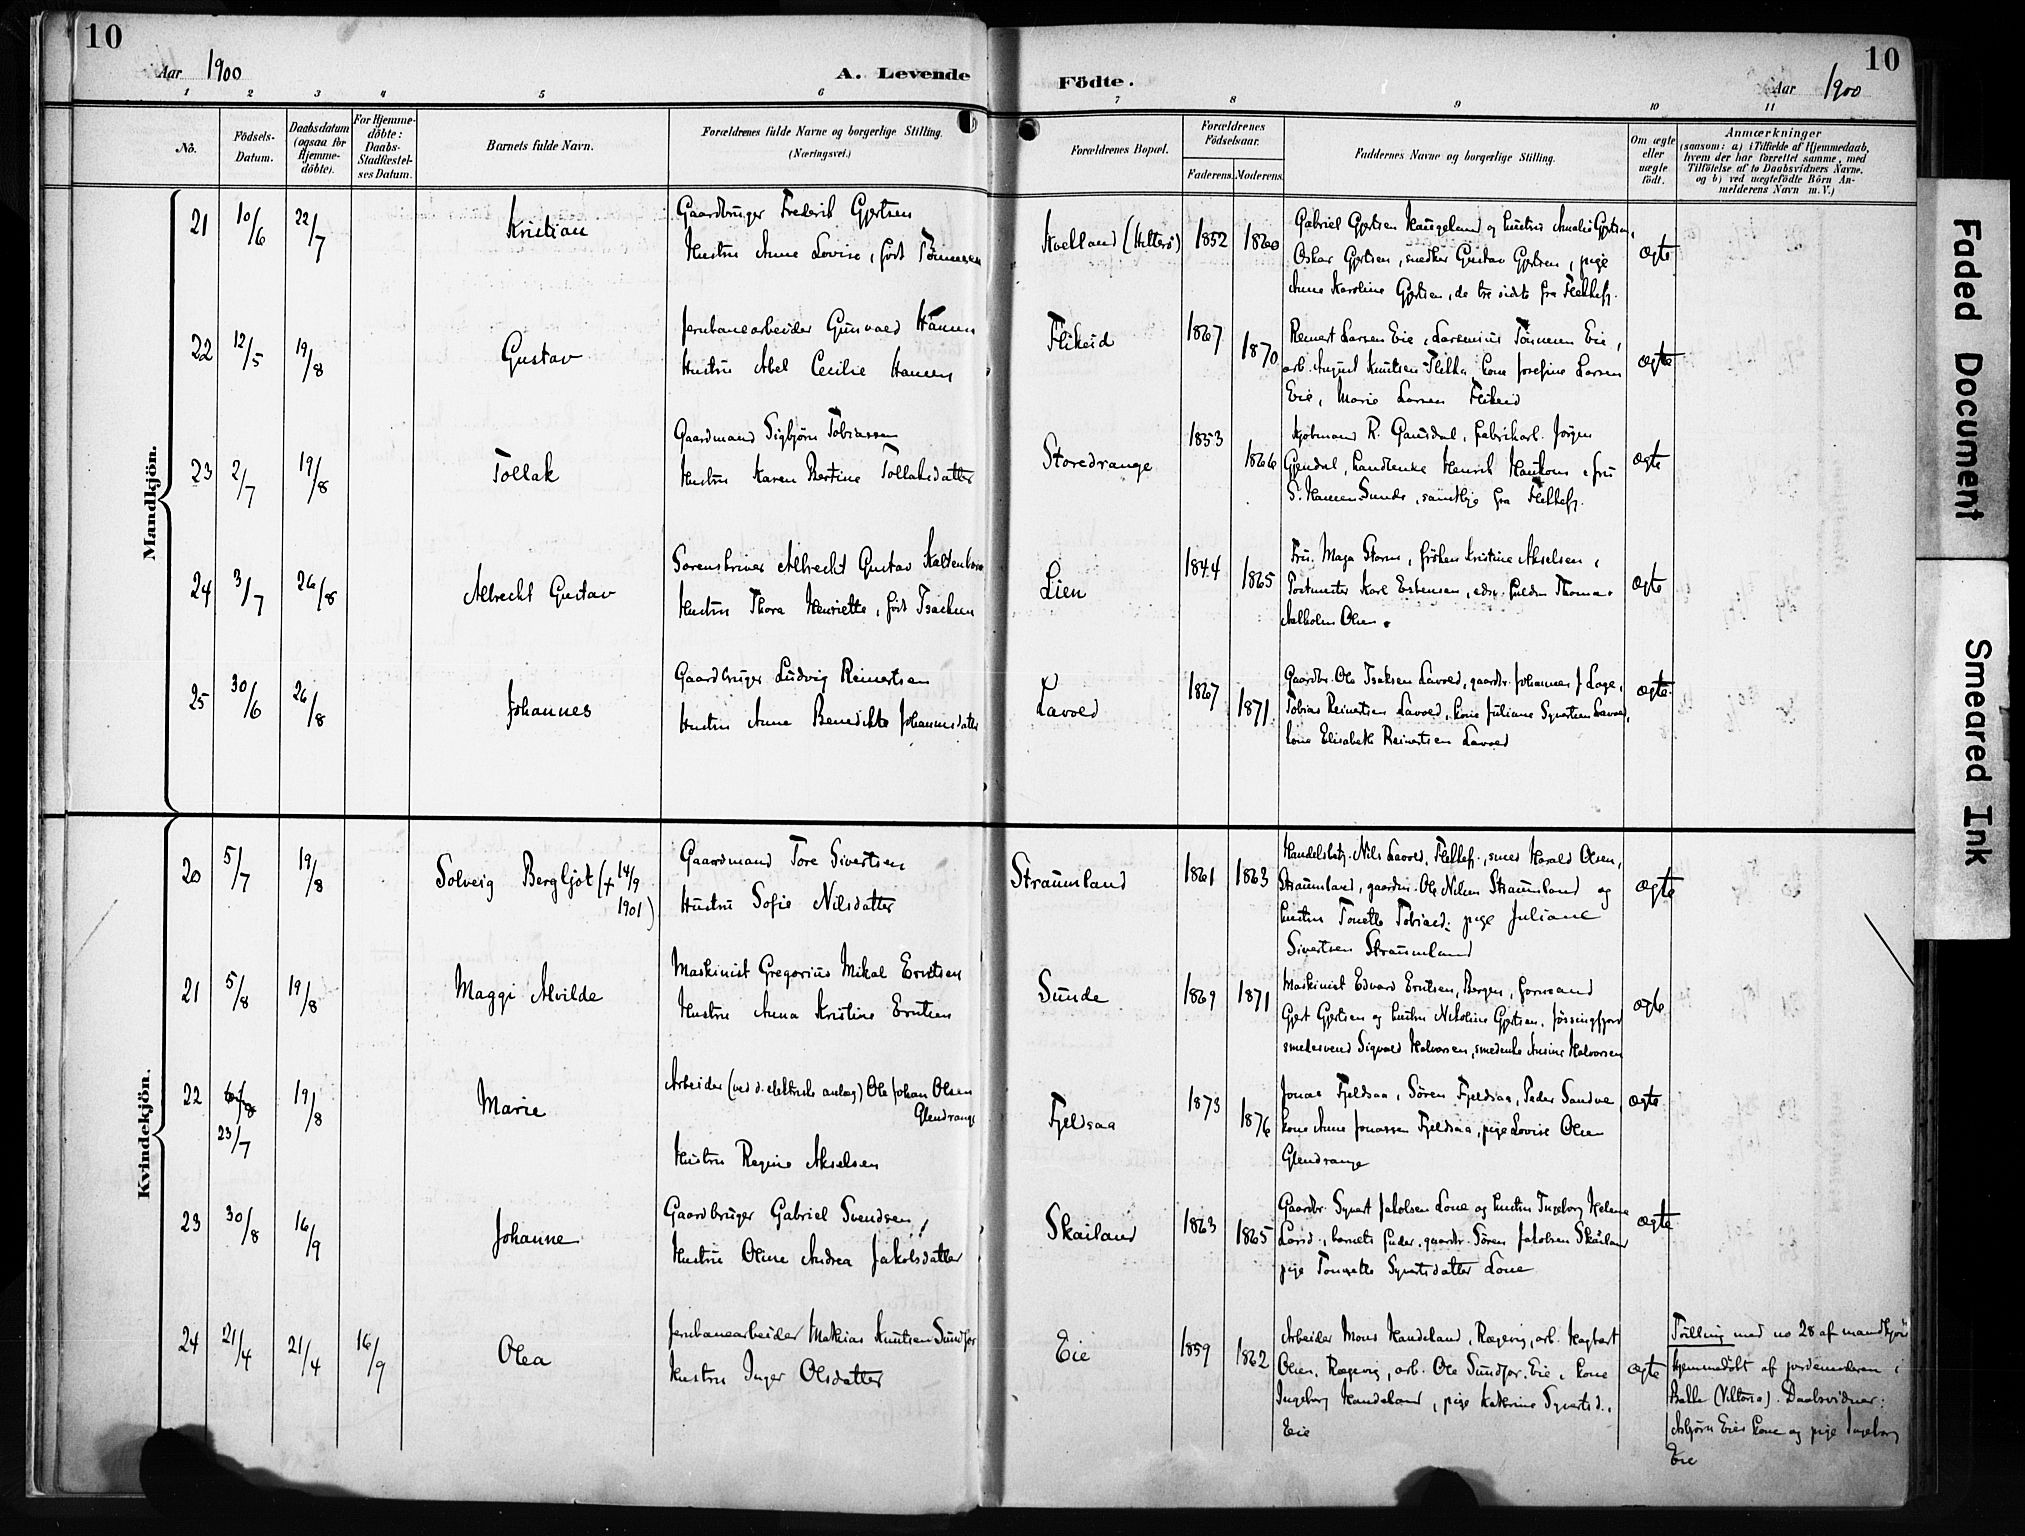 10
Aar 1900
A. Levende
Födte.
Aar 1900
10
1 2 3 4 5 6 7 8 9 10 11
No.
Födsels-
Datum.
Daabsdatum
(ogsaa for
Hjemme-
döbte).
For Hjemme-
döbte:
Daabs-
Stadfæstel-
ses Datum.
Barnets fulde Navn.
Forældrenes fulde Navne og borgerlige Stilling.
(Næringsvei.)
Forældrenes Bopæl.
Forældrenes
Födselsaar.
Faderens.
Moderens.
Faddernes Navne og borgerlige Stilling.
Om ægte
eller
uægte
födt.
Anmærkninger
(saasom: a) i Tilfælde af Hjemmedaab,
hvem der har forrettet samme, med
Tilföielse af to Daabsvidners Navne.
og b) ved uægtefödte Börn An-
melderens Navn m. V.)
Mandkjön.
21 10/6 22/7 Kristian
Gaardbruger Frederik Gjertsen
Hustru Anne Lovise, født Tönnesen
Kvelland (Hitterö) 1852 1860
Gabriel Gjertsen Haugeland og hustru Amalie Gjertsen,
Oskar Gjertsen, snedker Gustav Gjertsen, pige
Anne Karoline Gjertsen, de tre sidste fra Flekkefj.
ægte
22 12/5 19/8 Gustav
Jernbanearbeider Gunvald Hansen
Hustru Abel Cecilie Hansen
Flikeid 1867 1870
Reinert Larsen Eie, Larsenius Tönnesen Eie,
arb. August Knutsen Flikka, kone Josefine Larsen
Eie, Marie Larsen Flikeid
ægte
23 2/7 19/8 Tollak
Gaardmand Sigbjörn Tobiassen
Hustru Karen Bertine Tollaksdatter
Storedrange 1853 1866
Kjöbmand R. Gausdal, fabrikarb. Jörgen
Gjendal, handlende Henrik Haukom, fru
S. Hansen Sunde, samtlige fra Flekkefj.
ægte
24 3/7 26/8 Albrecht Gustav
Sorenskriver Albrecht Gustav Kaltenborn
Hustru Thora Henriette, født Isachsen
Lien 1844 1865
Fru Maja Storm, fröken Kristine Akselsen,
Postmester Karl Esbensen, edsv. fuldm. Thomas
Aalholm Olsen.
ægte
25 30/6 26/8 Johannes
Gaardbruger Ludvig Reinertsen
Hustru Anne Benedikte Johannesdatter
Lavold 1867 1871
Gaardbr. Ole Isaksen Lavold, gaardbr. Johannes J. Loge,
Tobias Reinertsen Lavold, kone Juliane Syvertsen Lavold,
kone Elisabeth Reinertsen Lavold
ægte
Kvindekjön.
20 5/7 19/8 Solveig Bergljot († 14/9
1901)
Gaardmand Tore Sivertsen
Hustru Sofie Nilsdatter
Straumland 1861 1863
Handelsbetj. Nils Lavold, Flekkefj., smed Harald Olsen,
Straumland, gaardm. Ole Nilsen Straumland og
hustru Tonette Tobiasd., pige Juliane
Sivertsen Straumland
ægte
21 5/8 19/8 Maggi Alvilde
Maskinist Gregorius Mikal Erntsen
Hustru Anna Kristine Erntsen
Sunde 1869 1871
Maskinist Edvard Erntsen, Bergen, formand
Gjert Gjertsen og hustru Nikoline Gjertsen, Jössingfjord
smedesvend Sigvald Halvorsen, smedenke Ansine Halvorsen
ægte
22 23/7 19/8 Marie
Arbeider (ved d. elektriske anlæg) Ole Johan Olsen
Glendrange
Hustru Regine Akselsen
Fjeldsaa 1873 1876
Jonas Fjeldsaa, Sören Fjeldsaa, Peder Sandve,
kone Anne Jonassen Fjeldsaa, pige Lovise Olsen
Glendrange
ægte
23 30/8 16/9 Johanne
Gaardbruger Gabriel Svendsen,
Hustru Oline Andrea Jakobsdatter
Skailand 1863 1865
Gaardbr. Syvert Jakobsen Lone og hustru Ingeborg Helene
Larsd., barnets fader, gaardbr. Sören Jakobsen Skailand
pige Tonnette Syvertsdatter Lone
ægte
24 21/4 21/4 16/9 Olea
Jernbanearbeider Mathias Knutsen Sundfor
Hustru Inger Olsdatter
Eie 1859 1862
Arbeider Mons Handeland, Rægevig, arb. Hagbart
Olsen, Rægevig, arb. Ole Sundfor, Eie, kone
Ingeborg Handeland, pige Kathrine Syvertsd.,
Eie
ægte
Tvilling med no 28 af mandkjön
Hjemmedöbt af jordemoderen i
Bakke (Viktoria). Daabsvidner:
Asbjörn Eies kone og pige Ingeborg
Eie
Faded Document
Smeared Ink